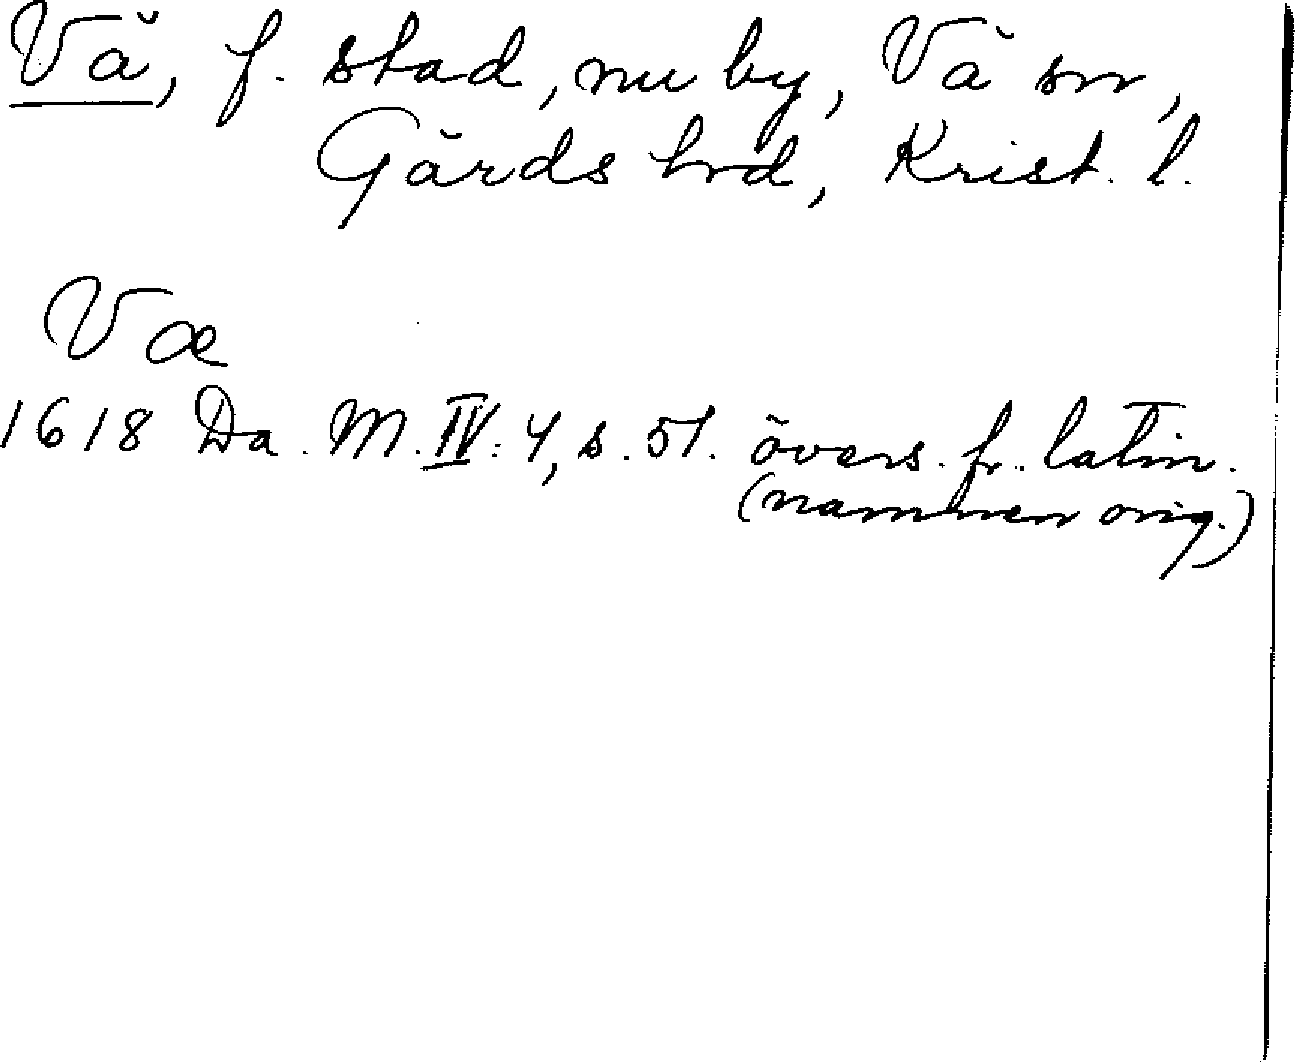 Vä, f. stad, nu by, Vä sn,
Gärds hrd, Krist. l.
Væ
1618 Da. M. IV: 4, s. 51. övers. fr. latin.
(namnen orig.)